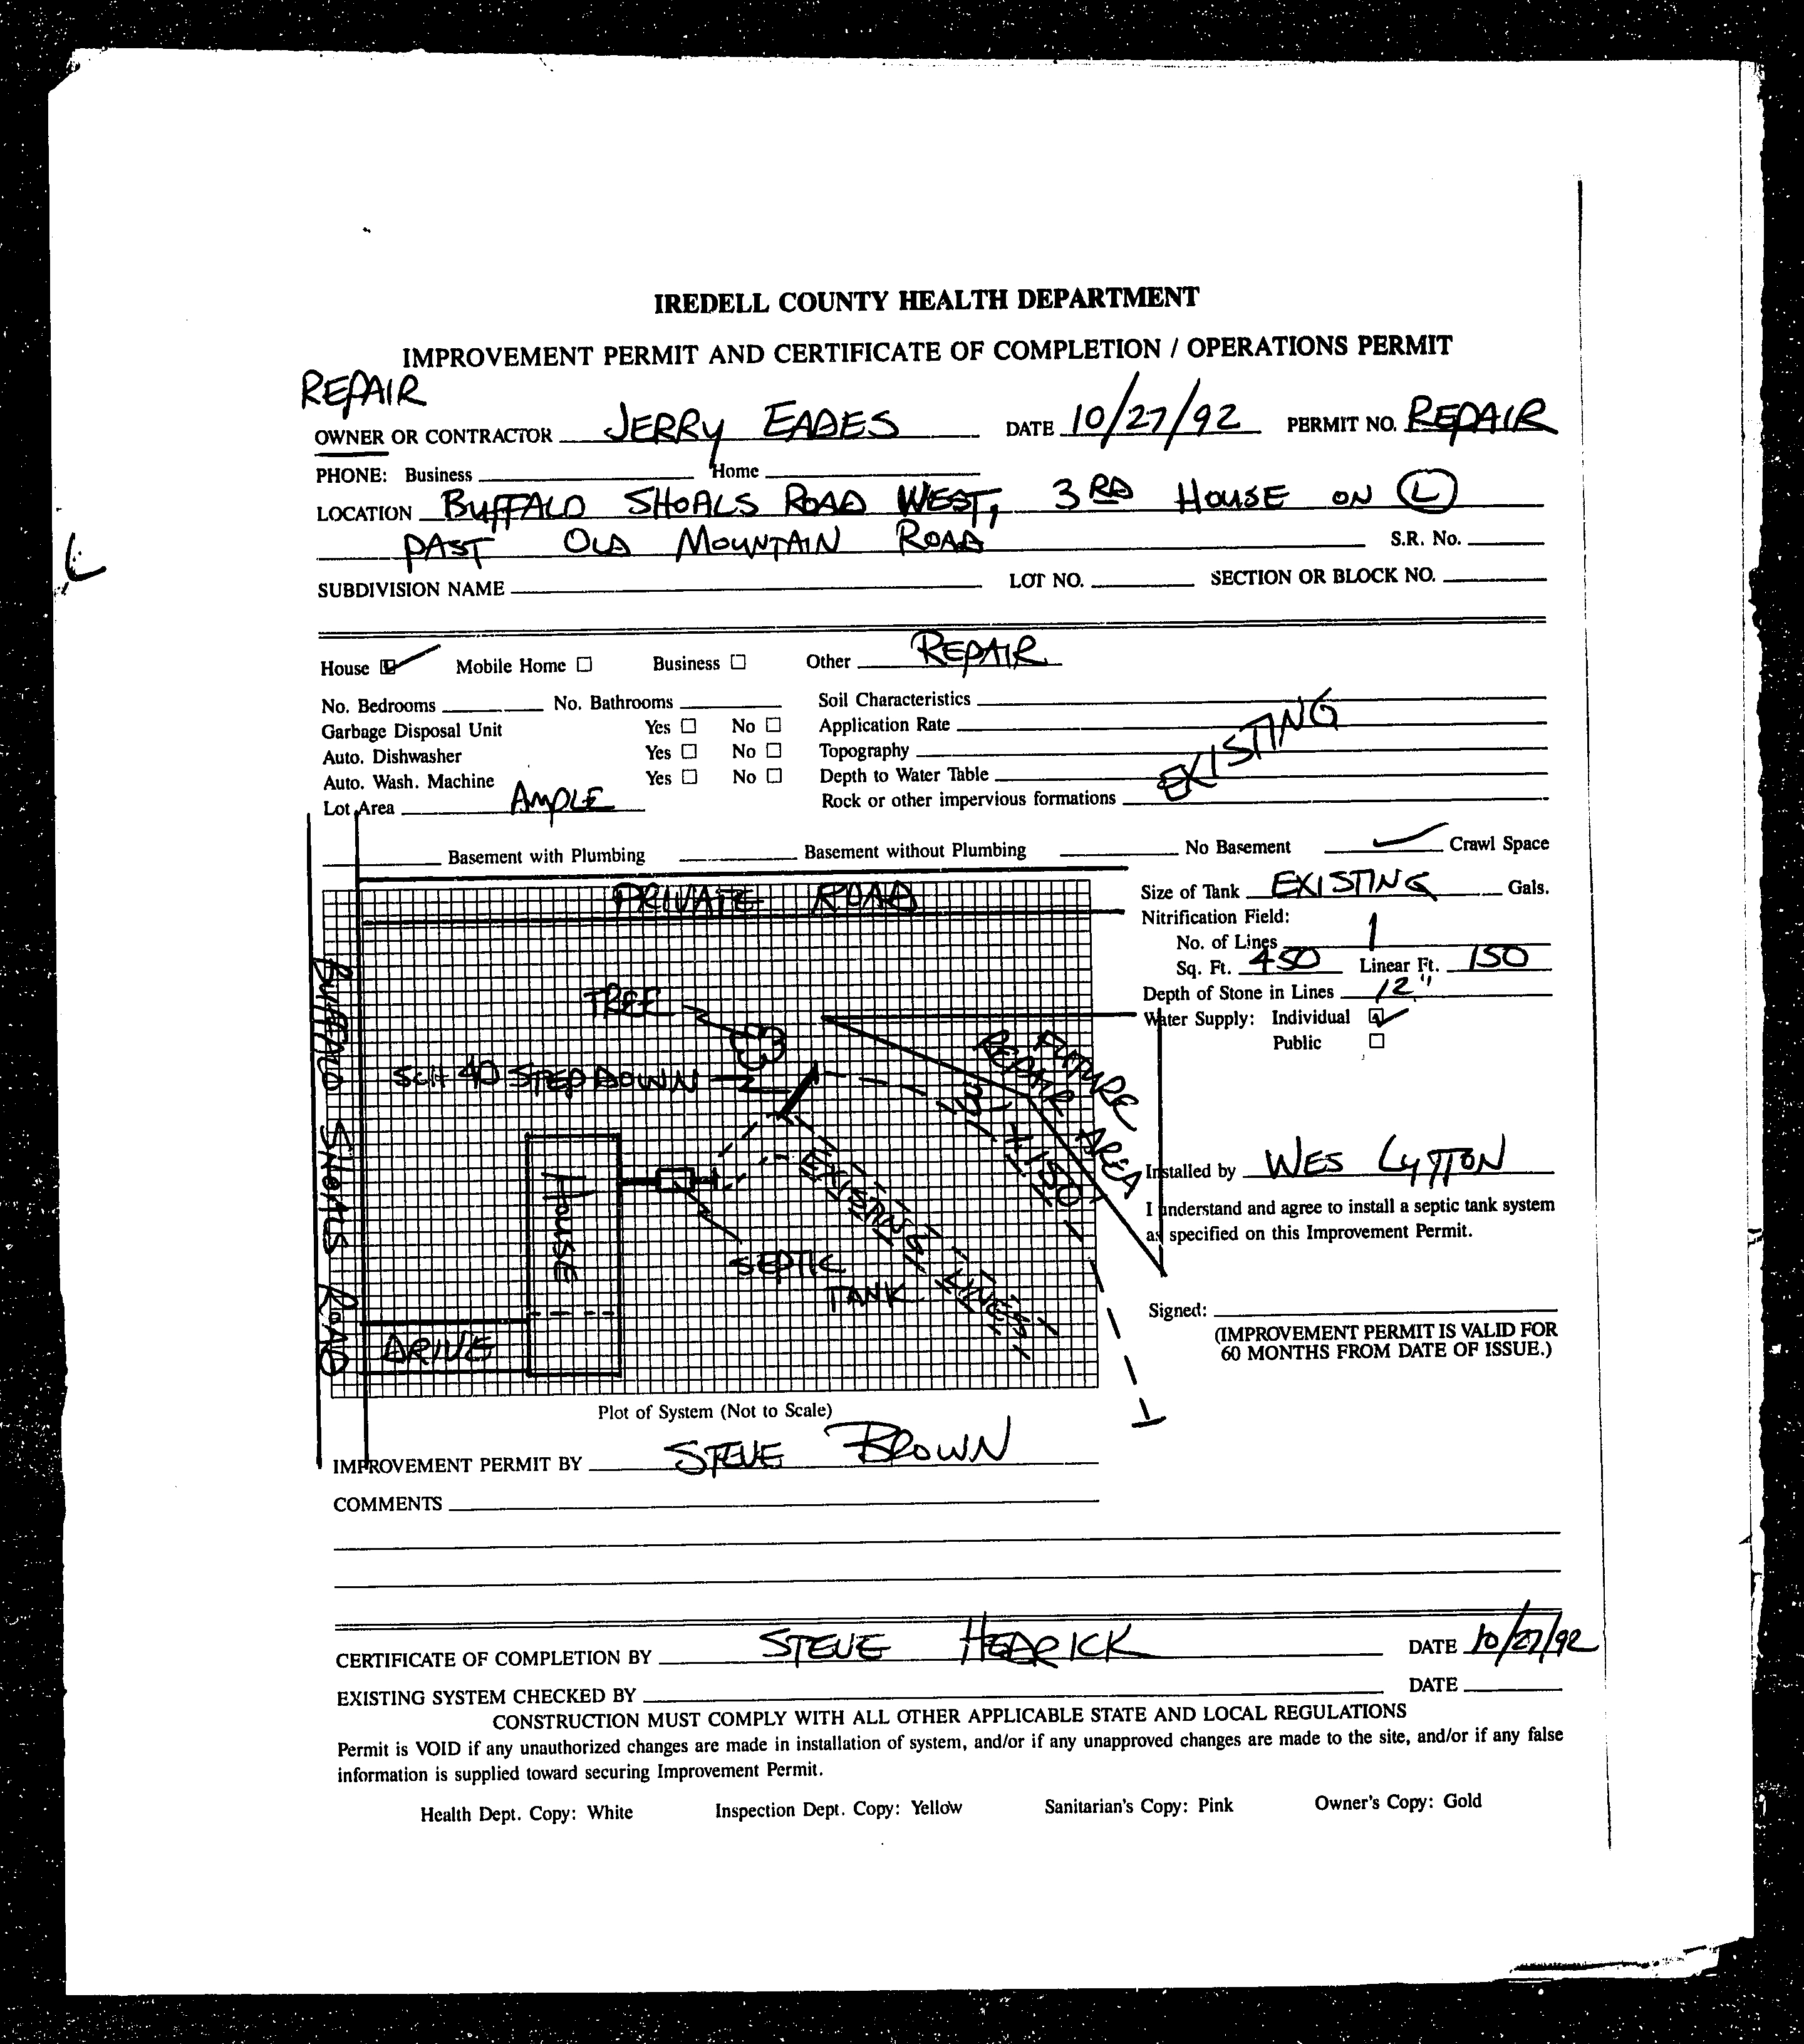 IREDELL COUNTY HEALTH DEPARTMENT
IMPROVEMENT PERMIT AND CERTIFICATE OF COMPLETION / OPERATIONS PERMIT
REPAIR
OWNER OR CONTRACTOR JERRY EADES DATE 10/27/92 PERMIT NO. REPAIR
PHONE: Business Home
LOCATION BUFFALO SHOALS ROAD WEST, 3RD HOUSE ON L
PAST OLD MOUNTAIN ROAD S.R. No.
SUBDIVISION NAME LOT NO. SECTION OR BLOCK NO.
House Mobile Home Business Other REPAIR
No. Bedrooms No. Bathrooms Soil Characteristics
Garbage Disposal Unit Yes No Application Rate
Auto. Dishwasher Yes No Topography
Auto. Wash. Machine Yes No Depth to Water Table
Lot Area AMPLE Rock or other impervious formations
EXISTING
Basement with Plumbing Basement without Plumbing No Basement Crawl Space
PRIVATE ROAD
BUFFALO SHOALS ROAD
TREE
SCH 40 STEP DOWN
FUTURE
REPAIR
AREA
3' X 150'
HOUSE
EXISTING LINES
SEPTIC
TANK
DRIVE
Plot of System (Not to Scale)
Size of Tank EXISTING Gals.
Nitrification Field:
No. of Lines 1
Sq. Ft. 450 Linear Ft. 150
Depth of Stone in Lines 12"
Water Supply: Individual
Public
Installed by WES LYTTON
I understand and agree to install a septic tank system
as specified on this Improvement Permit.
Signed:
(IMPROVEMENT PERMIT IS VALID FOR
60 MONTHS FROM DATE OF ISSUE.)
IMPROVEMENT PERMIT BY STEVE BROWN
COMMENTS
CERTIFICATE OF COMPLETION BY STEVE HEDRICK DATE 10/27/92
EXISTING SYSTEM CHECKED BY DATE
CONSTRUCTION MUST COMPLY WITH ALL OTHER APPLICABLE STATE AND LOCAL REGULATIONS
Permit is VOID if any unauthorized changes are made in installation of system, and/or if any unapproved changes are made to the site, and/or if any false
information is supplied toward securing Improvement Permit.
Health Dept. Copy: White Inspection Dept. Copy: Yellow Sanitarian's Copy: Pink Owner's Copy: Gold